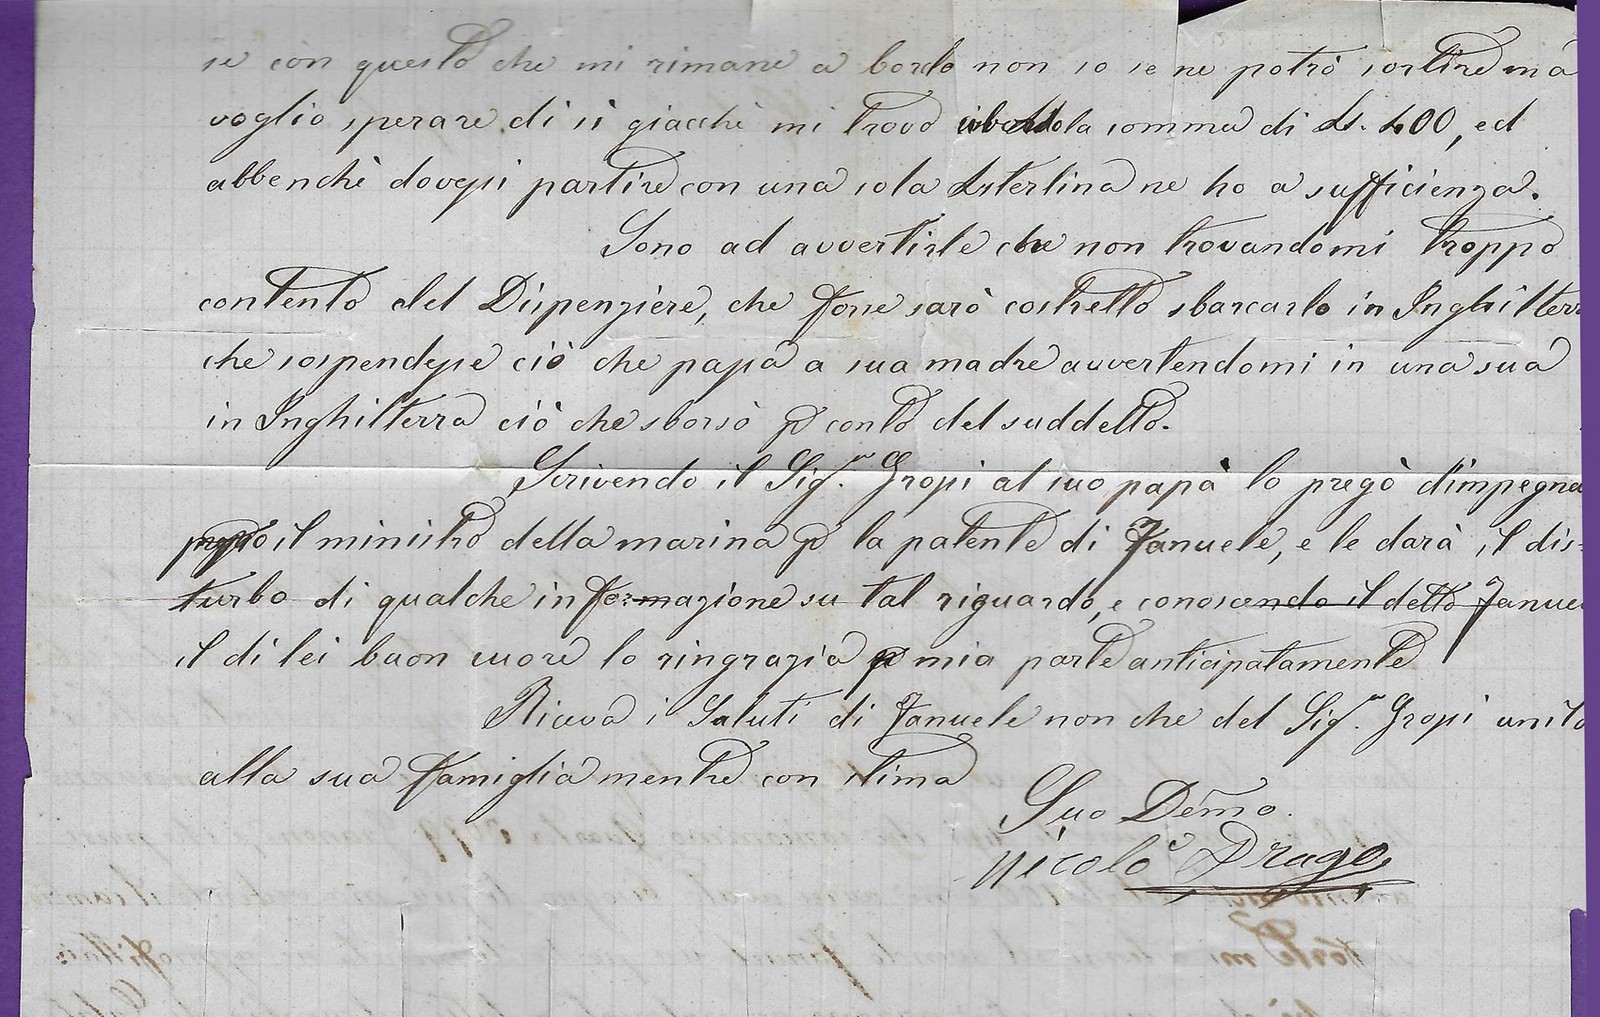 se con questo che mi rimane a bordo non so se ne potrò sortire mà
voglio sperare di sì giacchè mi trovo la somma di Ls. 400, ed
abbenchè dovessi partire con una sola Lsterlina ne ho a sufficienza.
Sono ad avvertirle che non trovandomi troppo
contento del Dispenziere, che forse sarò costretto sbarcarlo in Inghilterr
che sospendesse ciò che papa a sua madre avvertendomi in una sua
in Inghilterra ciò che sborsò p conto del suddetto.
Scrivendo il Sigr. Gropi al suo papà lo pregò d'impegna
il ministro della marina p la patente di Januele, e le darà il dis-
turbo di qualche informazione su tal riguardo, e conoscendo il detto Januel
il di lei buon cuore lo ringrazia p mia parte anticipatamente
Riceva i Saluti di Januele non che del Sigr. Gropi unito
alla sua famiglia mentre con stima
Suo Demo.
Nicolò Drago